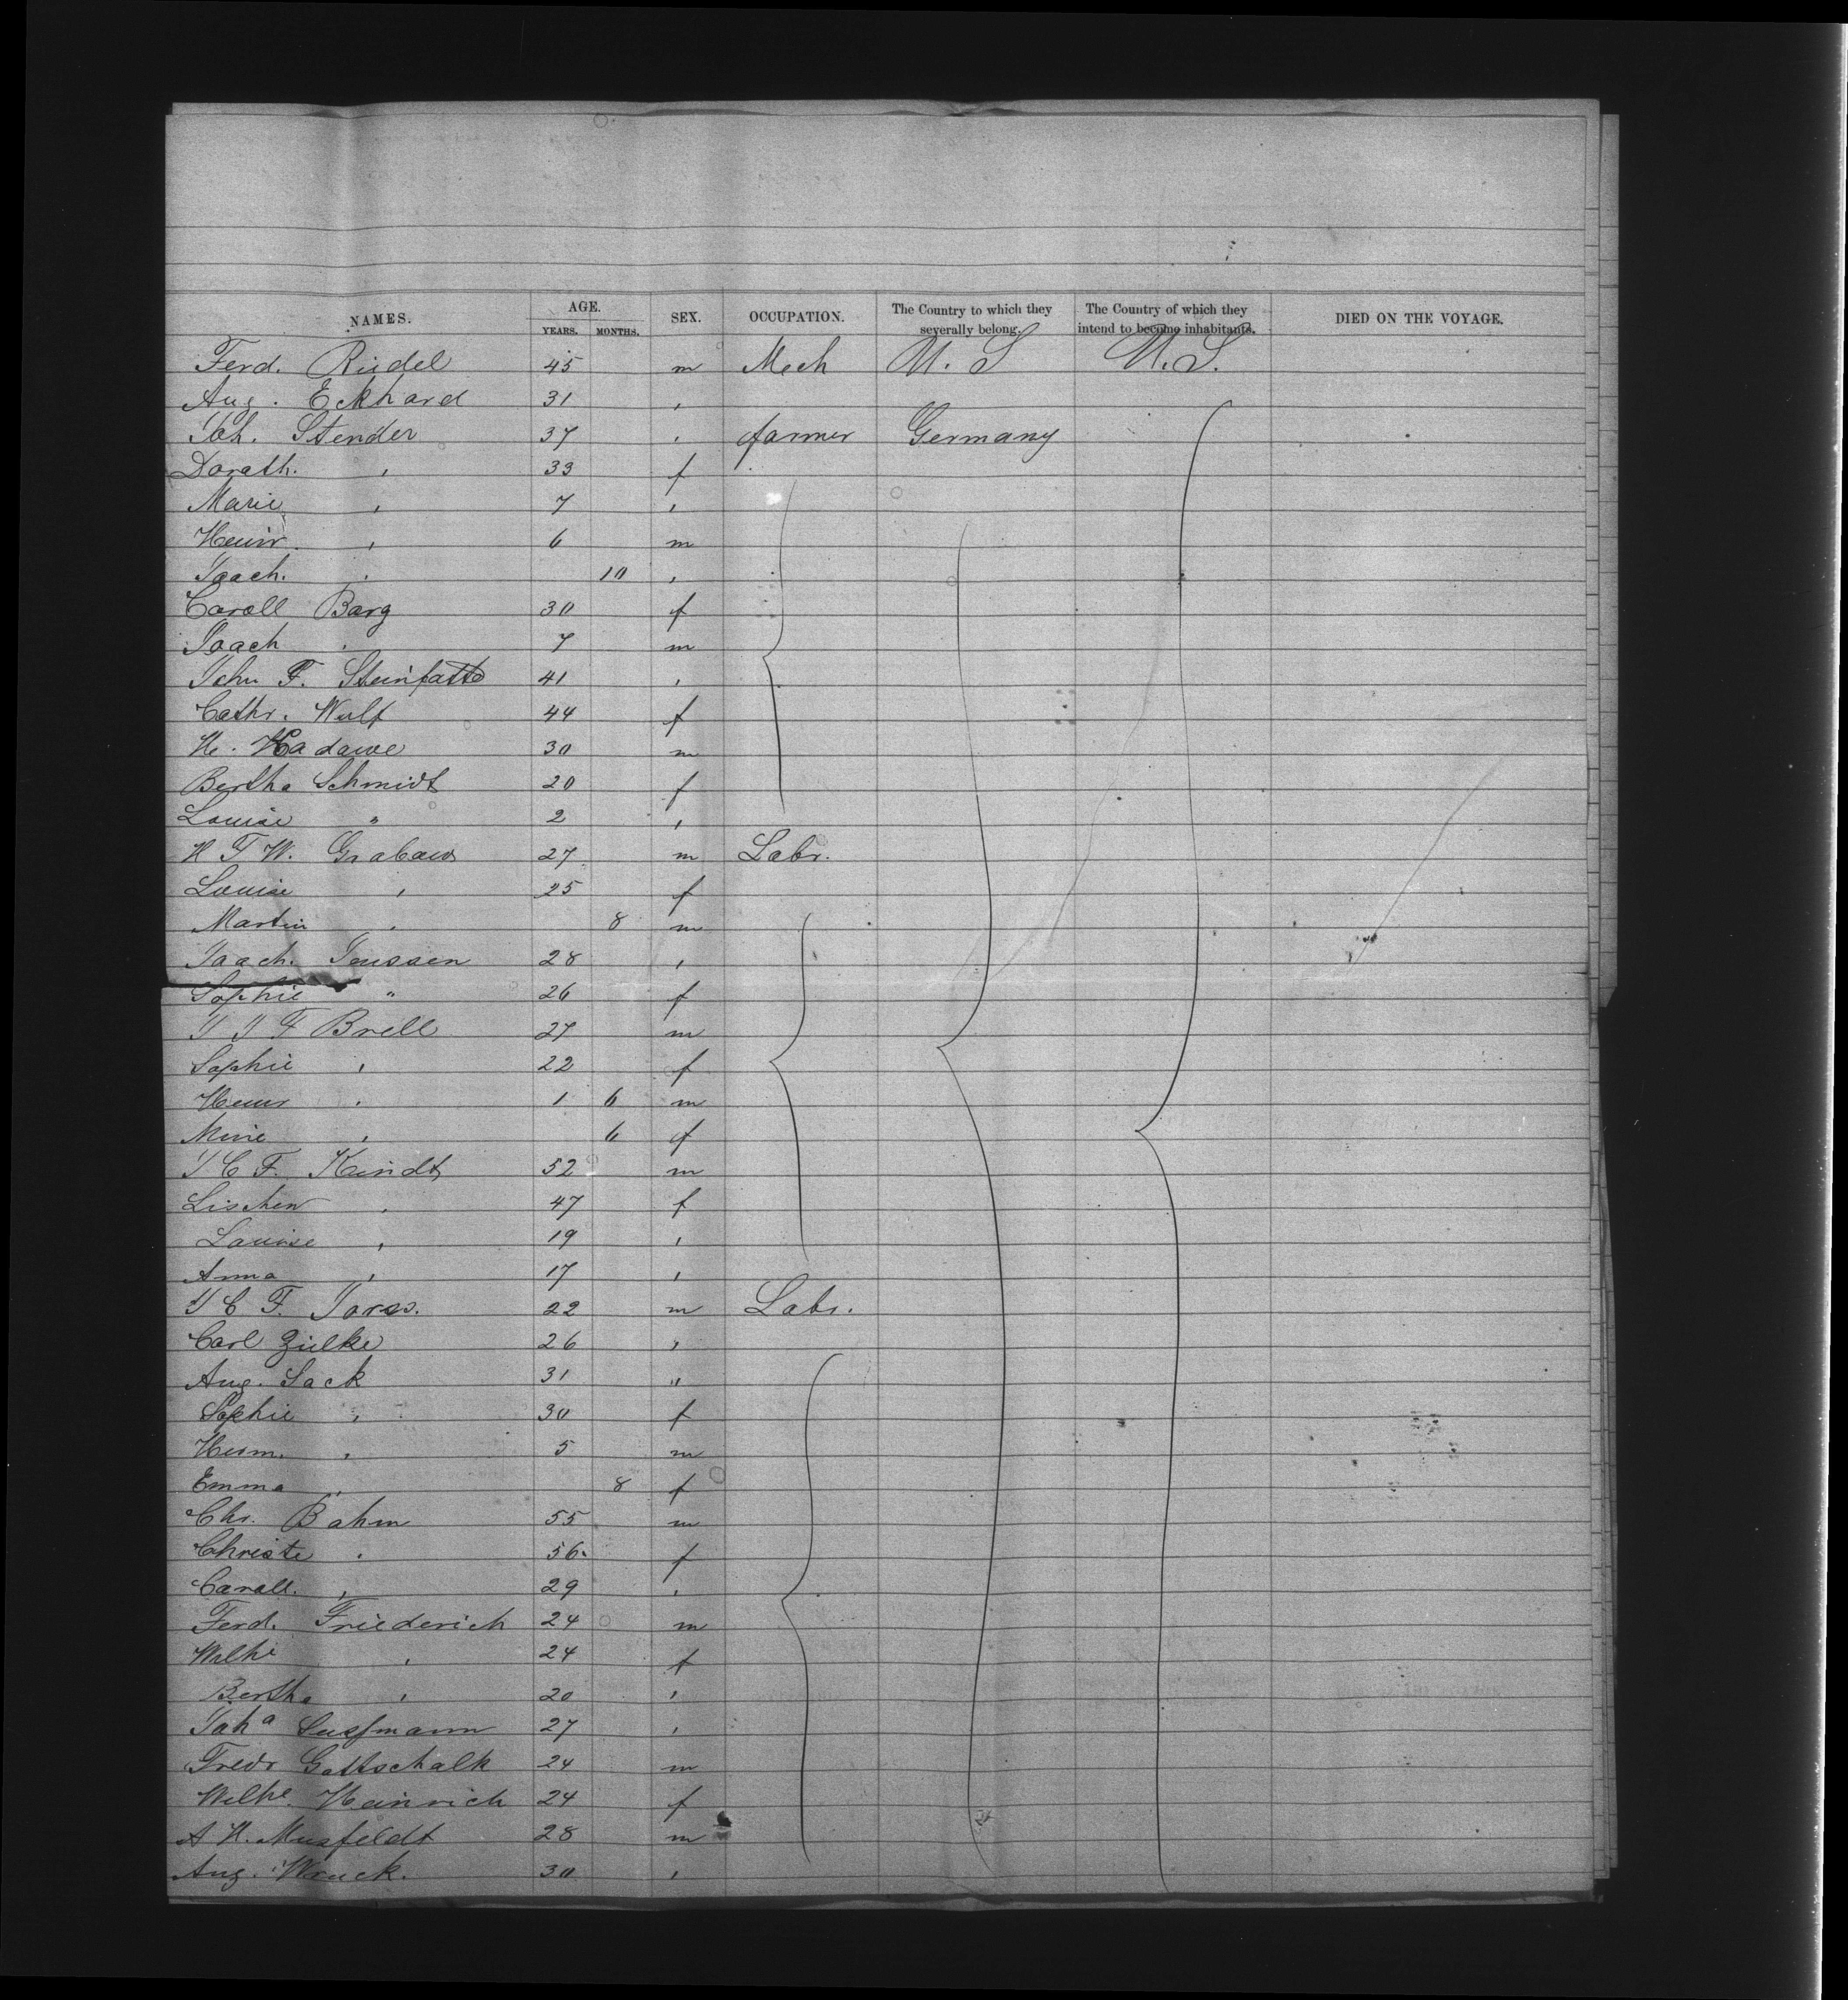 NAMES. AGE. YEARS. MONTHS. SEX. OCCUPATION. The Country to which they severally belong. The Country of which they intend to become inhabitants. DIED ON THE VOYAGE.
Ferd. Riedel 45 m Mech U. S U. S.
Aug. Eckhard 31 "
Joh. Stender 37 " farmer Germany
Dorath. " 33 f
Marie " 7 "
Heinr. " 6 m
Joach. " 10 "
Caroll Barg 30 f
Joach " 7 m
John F. Steinfatt 41 "
Cathr. Wulf 44 f
H. Kadawe 30 m
Bertha Schmidt 20 f
Louise " 2 "
H F W. Grabow 27 m Labr.
Louise " 25 f
Martin " 8 m
Joach. Jenssen 28 "
Sophie " 26 f
J J F Brell 27 m
Sophie " 22 f
Heinr " 1 6 m
Mine " 6 f
J C F. Kindt 52 m
Lischen " 47 f
Louise " 19 "
Anna " 17 "
J C F. 22 m Labr.
Carl Zielke 26 "
Aug. Sack 31 "
Sophie " 30 f
Herm. " 5 m
Emma " 8 f
Chr. Bahm 55 m
Christe " 56. f
Caroll. " 29 "
Ferd. Friederich 24 m
Wilhe " 24 f
Bertha " 20 "
Joha 27 "
Fredr Gottschalk 24 m
Wilhe. Heinrich 24 f
A H. Musfeldt 28 m
Aug. Wruck. 30 "